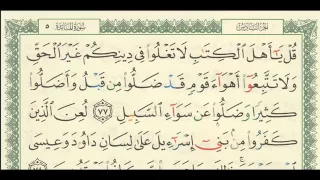 الجزء السادس سورة المائدة ٥
قُلْ يَٰٓأَهْلَ ٱلْكِتَٰبِ لَا تَغْلُوا۟ فِى دِينِكُمْ غَيْرَ ٱلْحَقِّ
وَلَا تَتَّبِعُوٓا۟ أَهْوَآءَ قَوْمٍ قَدْ ضَلُّوا۟ مِن قَبْلُ وَأَضَلُّوا۟
كَثِيرًا وَضَلُّوا۟ عَن سَوَآءِ ٱلسَّبِيلِ ٧٧ لُعِنَ ٱلَّذِينَ
كَفَرُوا۟ مِنۢ بَنِىٓ إِسْرَٰٓءِيلَ عَلَىٰ لِسَانِ دَاوُۥدَ وَعِيسَى